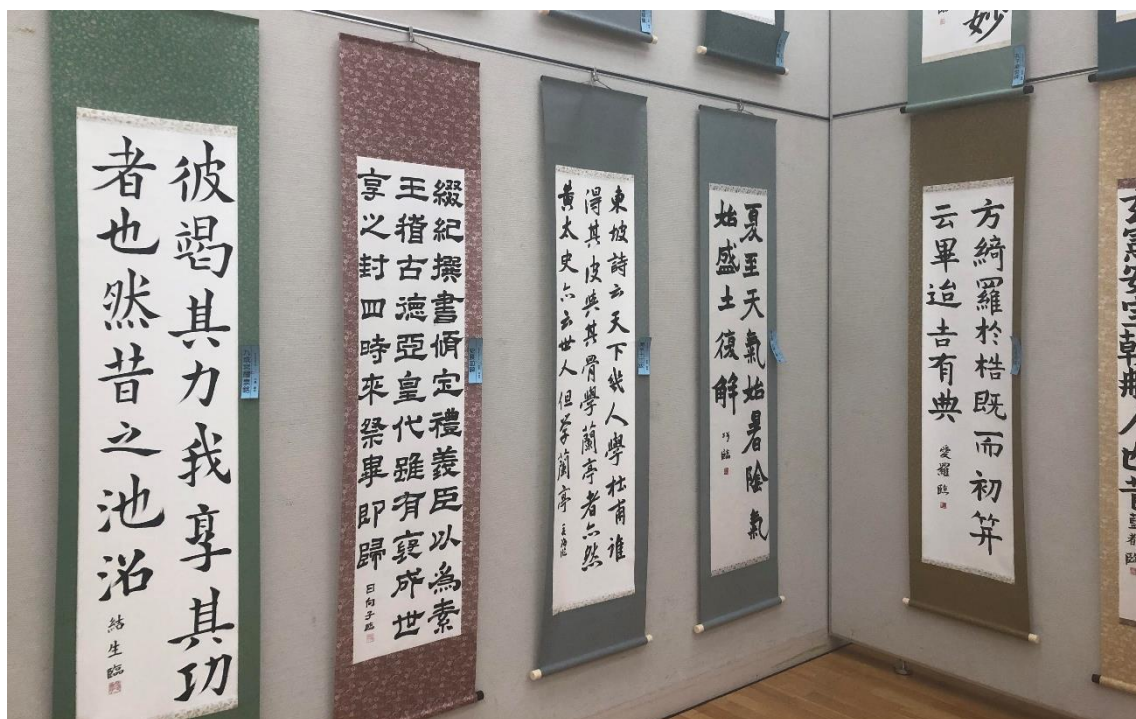 彼竭其力我享其功
者也然昔之池沼
結生臨
綴紀撰書脩定禮義臣以為素
王稽古德亞皇代雖有褒成世
享之封四時來祭畢即歸
日向子臨
東坡詩云天下幾人學杜甫誰
得其皮與其骨學蘭亭者亦然
黄太史亦云世人但学蘭亭
夏至天氣始暑陰氣
始盛土復解
臨
妙
方綺羅於梏既而初笄
云畢迨吉有典
愛羅臨